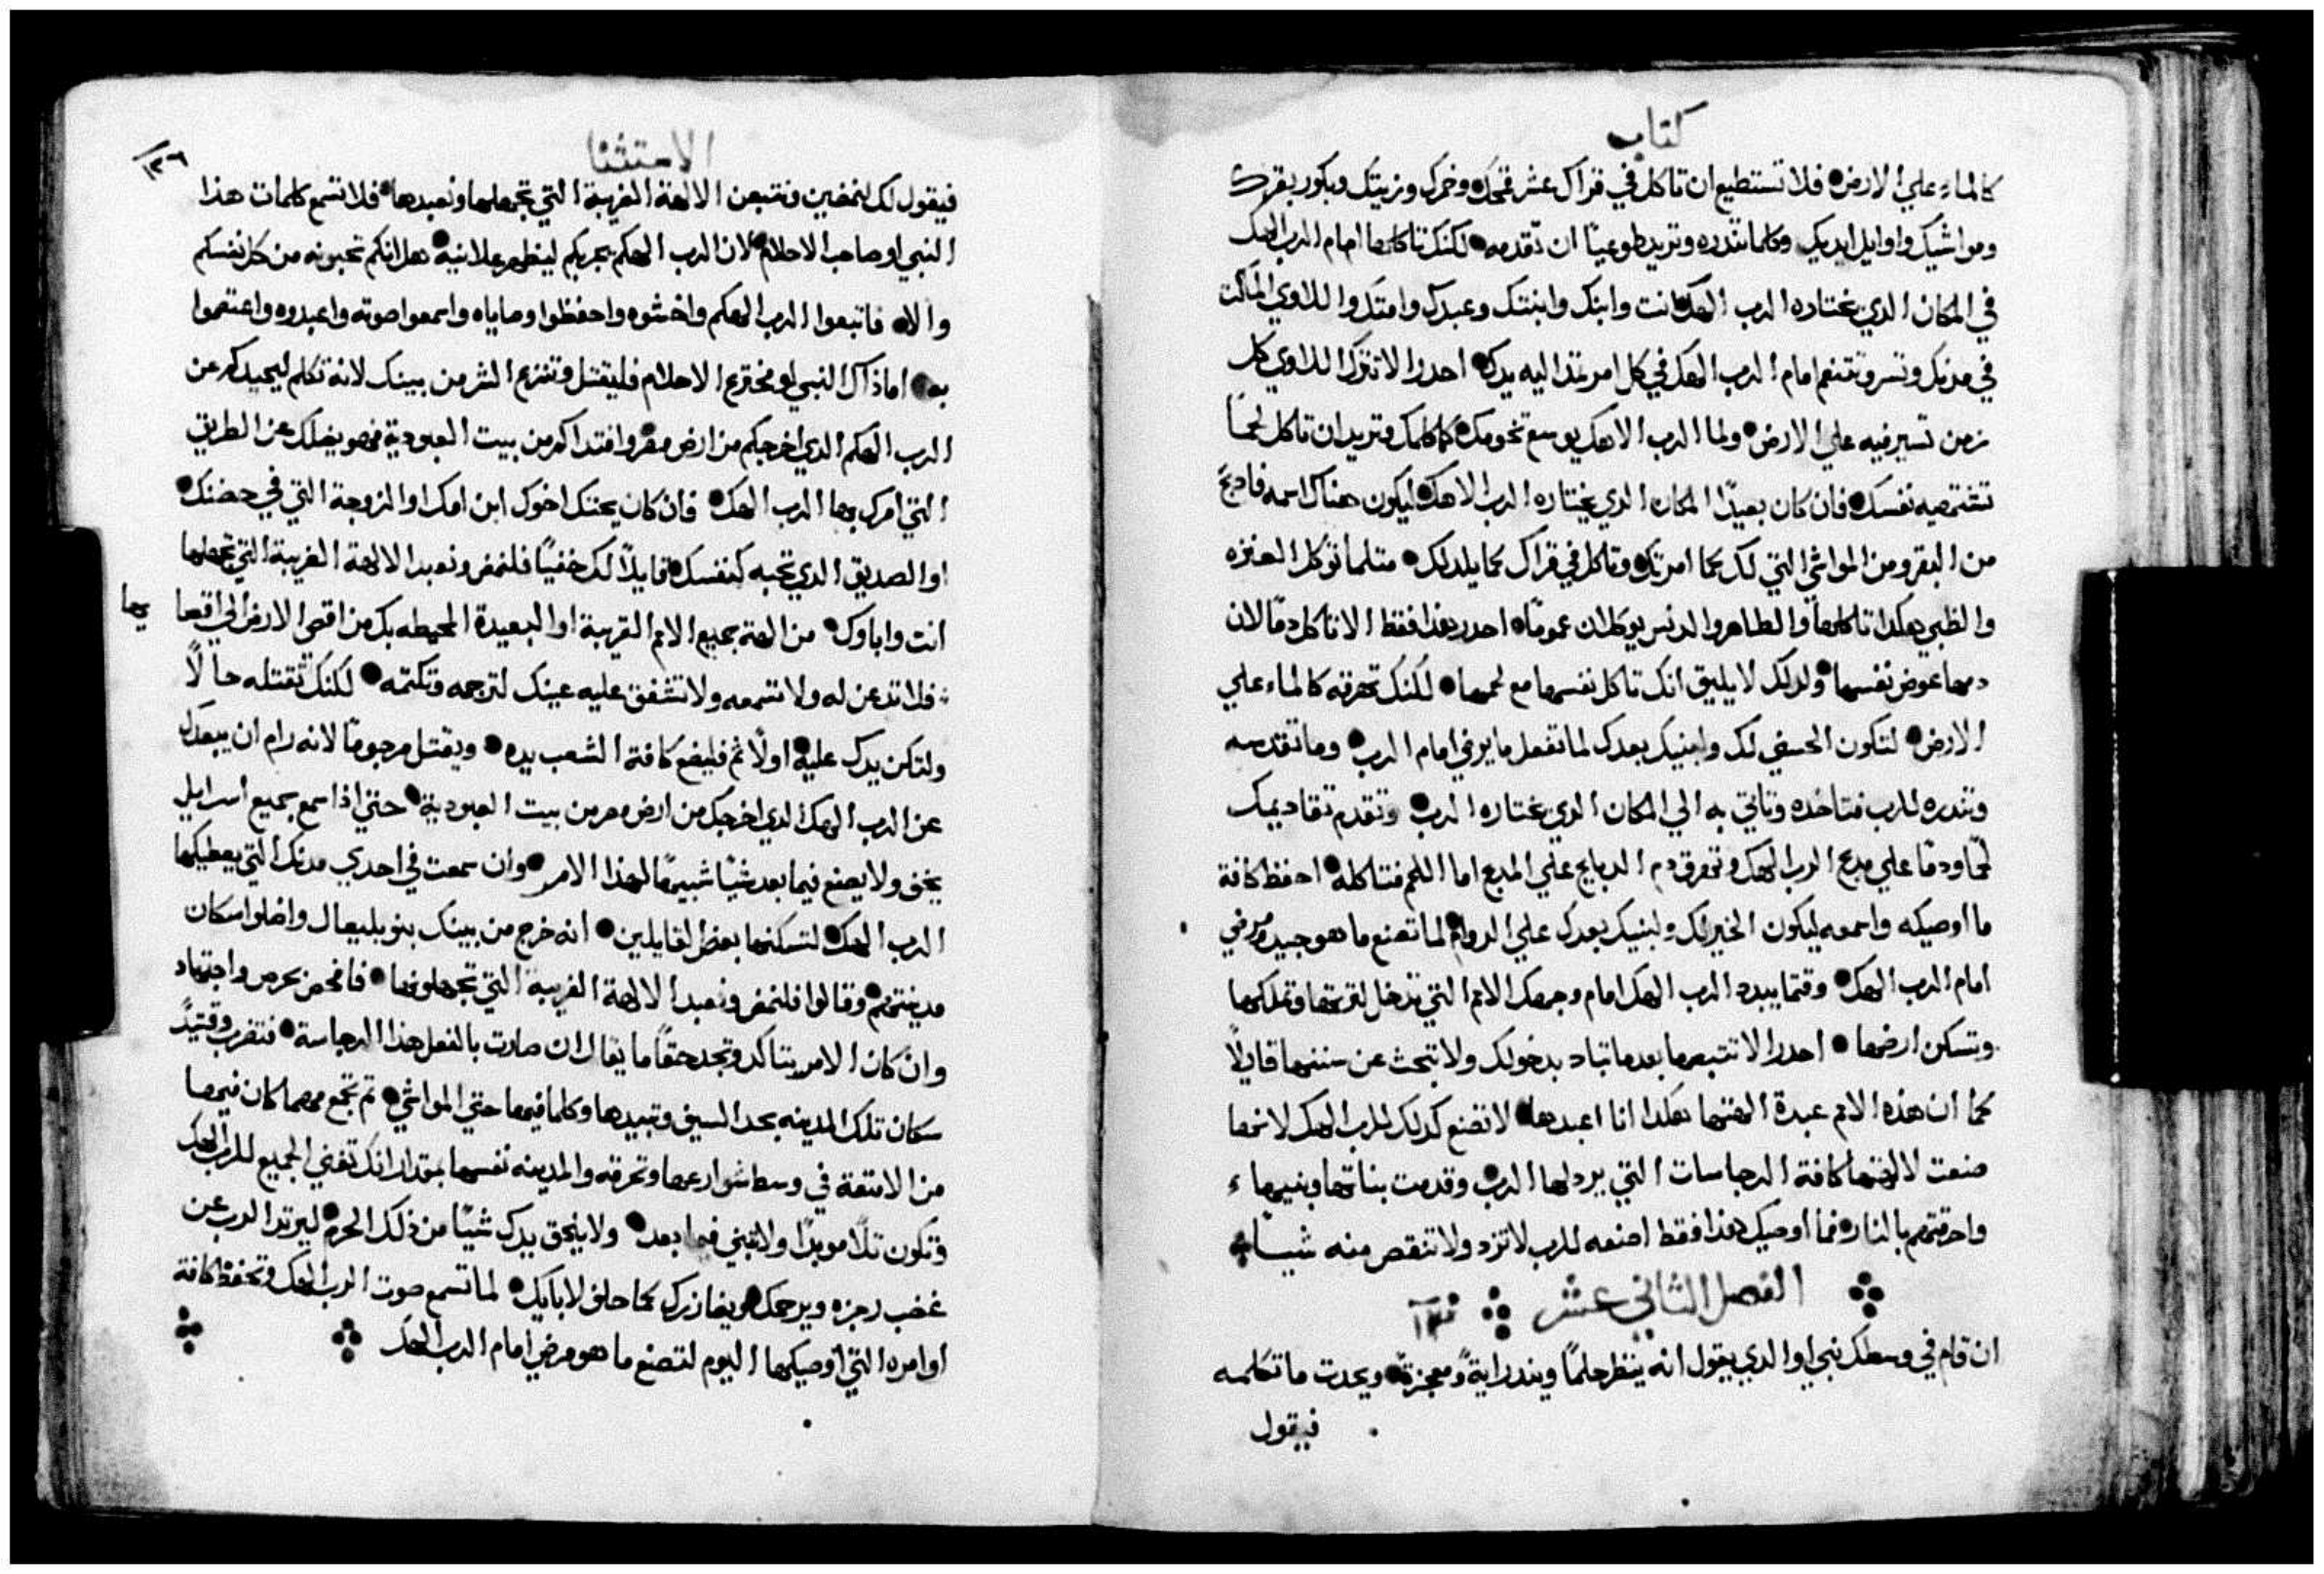 كتاب
كالماء علي الارض فلا تستطيع ان تاكل في قراك عشر قمحك وخمرك وزيتك وبكور بقرك
ومواشيك واوايل ايديك وكلما تندره وتريد طوعيًا ان تقدمه لكنك تاكلها امام الرب الهك
في المكان الدي يختاره الرب الهك انت وابنك وابنتك وعبدك وامتك واللاوي الماكث
في مدنك وتسر وتتنعم امام الرب الهك في كل امر تمد اليه يدك احدر الا تترك اللاوي كل
زمن تسير فيه علي الارض ولما الرب الاهك يوسع تخومك كما كلمك وتريد ان تاكل لحمًا
تشتهيه نفسك فان كان بعيدًا المكان الدي يختاره الرب الاهك ليكون هناك اسمه فادبح
من البقر ومن المواشي التي لك كما امرتك وتاكل في قراك كما يلد لك متلما توكل العنزه
والظبي هكدا تاكلها والطاهر والدنس يوكلان عمومًا احدر هذا فقط الا تاكل دمًا لان
دمها عوض نفسها ولدلك لا يليق انك تاكل نفسها مع لحمها لكنك تهرقه كالماء علي
الارض لتكون الحسني لك ولبنيك بعدك لما تفعل ما يرضي امام الرب وما تقدسه
وتندره للرب فتاخده وتاتي به الي المكان الدي يختاره الرب وتقدم تقاديمك
لحمًا ودمًا علي مدبح الرب الهك وتهرق دم الدبايح علي المدبح اما اللحم فتاكله احفظ كافة
ما اوصيكه واسمعه ليكون الخير لك ولبنيك بعدك علي الدوام لما تصنع ما هو جيد ومرضي
امام الرب الهك وقتما يبدد الرب الهك امام وجهك الامم التي تدخل لترثها وتملكها
وتسكن ارضها احدر الا تتبعها بعدما تباد بدخولك ولا تبحث عن سننها قايلًا
كما ان هذه الامم عبدة الهتها هكدا انا اعبدها لا تصنع كدلك للرب الهك لانها
صنعت لالهتها كافة الرجاسات التي يردلها الرب وقدمت بناتها وبنيها
واحرقتهم بالنار فما اوصيك هذا فقط اصنعه للرب لا تزد ولا تنقص منه شيًا
الفصل الثاني عشر
ان قام في وسطك نبي او الدي يقول انه ينظر حلمًا ويندر اية ومعجزة ويحدث ما تكلمه
فيقول
الاستثنا
١٢٦
فيقول لك لنمضين ونتبعن الالهة الغريبة التي تجهلها ونعبدها فلا تسمع كلمات هذا
النبي او صاحب الاحلام لان الرب الهكم يجربكم ليظهر علانية هل انكم تحبونه من كل نفسكم
والا فاتبعوا الرب الهكم واخشوه واحفظوا وصاياه واسمعوا صوته واعبدوه واعتصموا
به اما ذاك النبي او مخترع الاحلام فليقتل وتنزع الشر من بينك لانه تكلم ليحيدكم عن
الرب الهكم الدي اخرجكم من ارض مصر وافتداكم من بيت العبودية فهو يضلك عن الطريق
التي امرك بها الرب الهك فان كان يحتك اخوك ابن امك او الزوجة التي في حضنك
او الصديق الدي تحبه كنفسك قايلًا لك خفيًا فلنمض ونعبد الالهة الغريبة التي تجهلها
انت واباوك من الهة جميع الامم القريبة او البعيدة المحيطه بك من اقصي الارض الي اقصاها
فلا تدعن له ولا تسمعه ولا تشفق عليه عينك لترحمه وتكتمه لكنك تقتله حالًا
ولتكن يدك عليه اولًا ثم فليضع كافة الشعب يده ويقتل مرجومًا لانه رام ان يبعدك
عن الرب الهك الدي اخرجك من ارض مصر من بيت العبودية حتي اذا سمع جميع اسرايل
يخف ولا يصنع فيما بعد شيًا شبيهًا لهذا الامر وان سمعت في احدي مدنك التي يعطيكها
الرب الهك لتسكنها بعض القايلين انه خرج من بينك بنو بليعال واضلوا سكان
مدينتهم وقالوا فلنمض ونعبد الالهة الغريبة التي تجهلونها فافحص بحرص واجتهاد
وان كان الامر يتاكد وتجد حقًا ما يقال ان صارت بالفعل هذا الرجاسة فتضرب وقتيدً
سكان تلك المدينه بحد السيف وتبيدها وكلما فيها حتي المواشي تم تجمع مهما كان فيها
من الامتعة في وسط شوارعها وتحرقه والمدينه نفسها بمقدار انك تفني الجميع للرب الهك
وتكون تلًا موبدًا ولا تبني فيما بعد ولا يلحق يدك شيًا من ذلك الحرم ليرتد الرب عن
غضب رجزه ويرحمك ويغازرك كما حلف لابايك لما تسمع صوت الرب الهك وتحفظ كافة
اوامره التي اوصيكها اليوم لتصنع ما هو مرضي امام الرب الهك